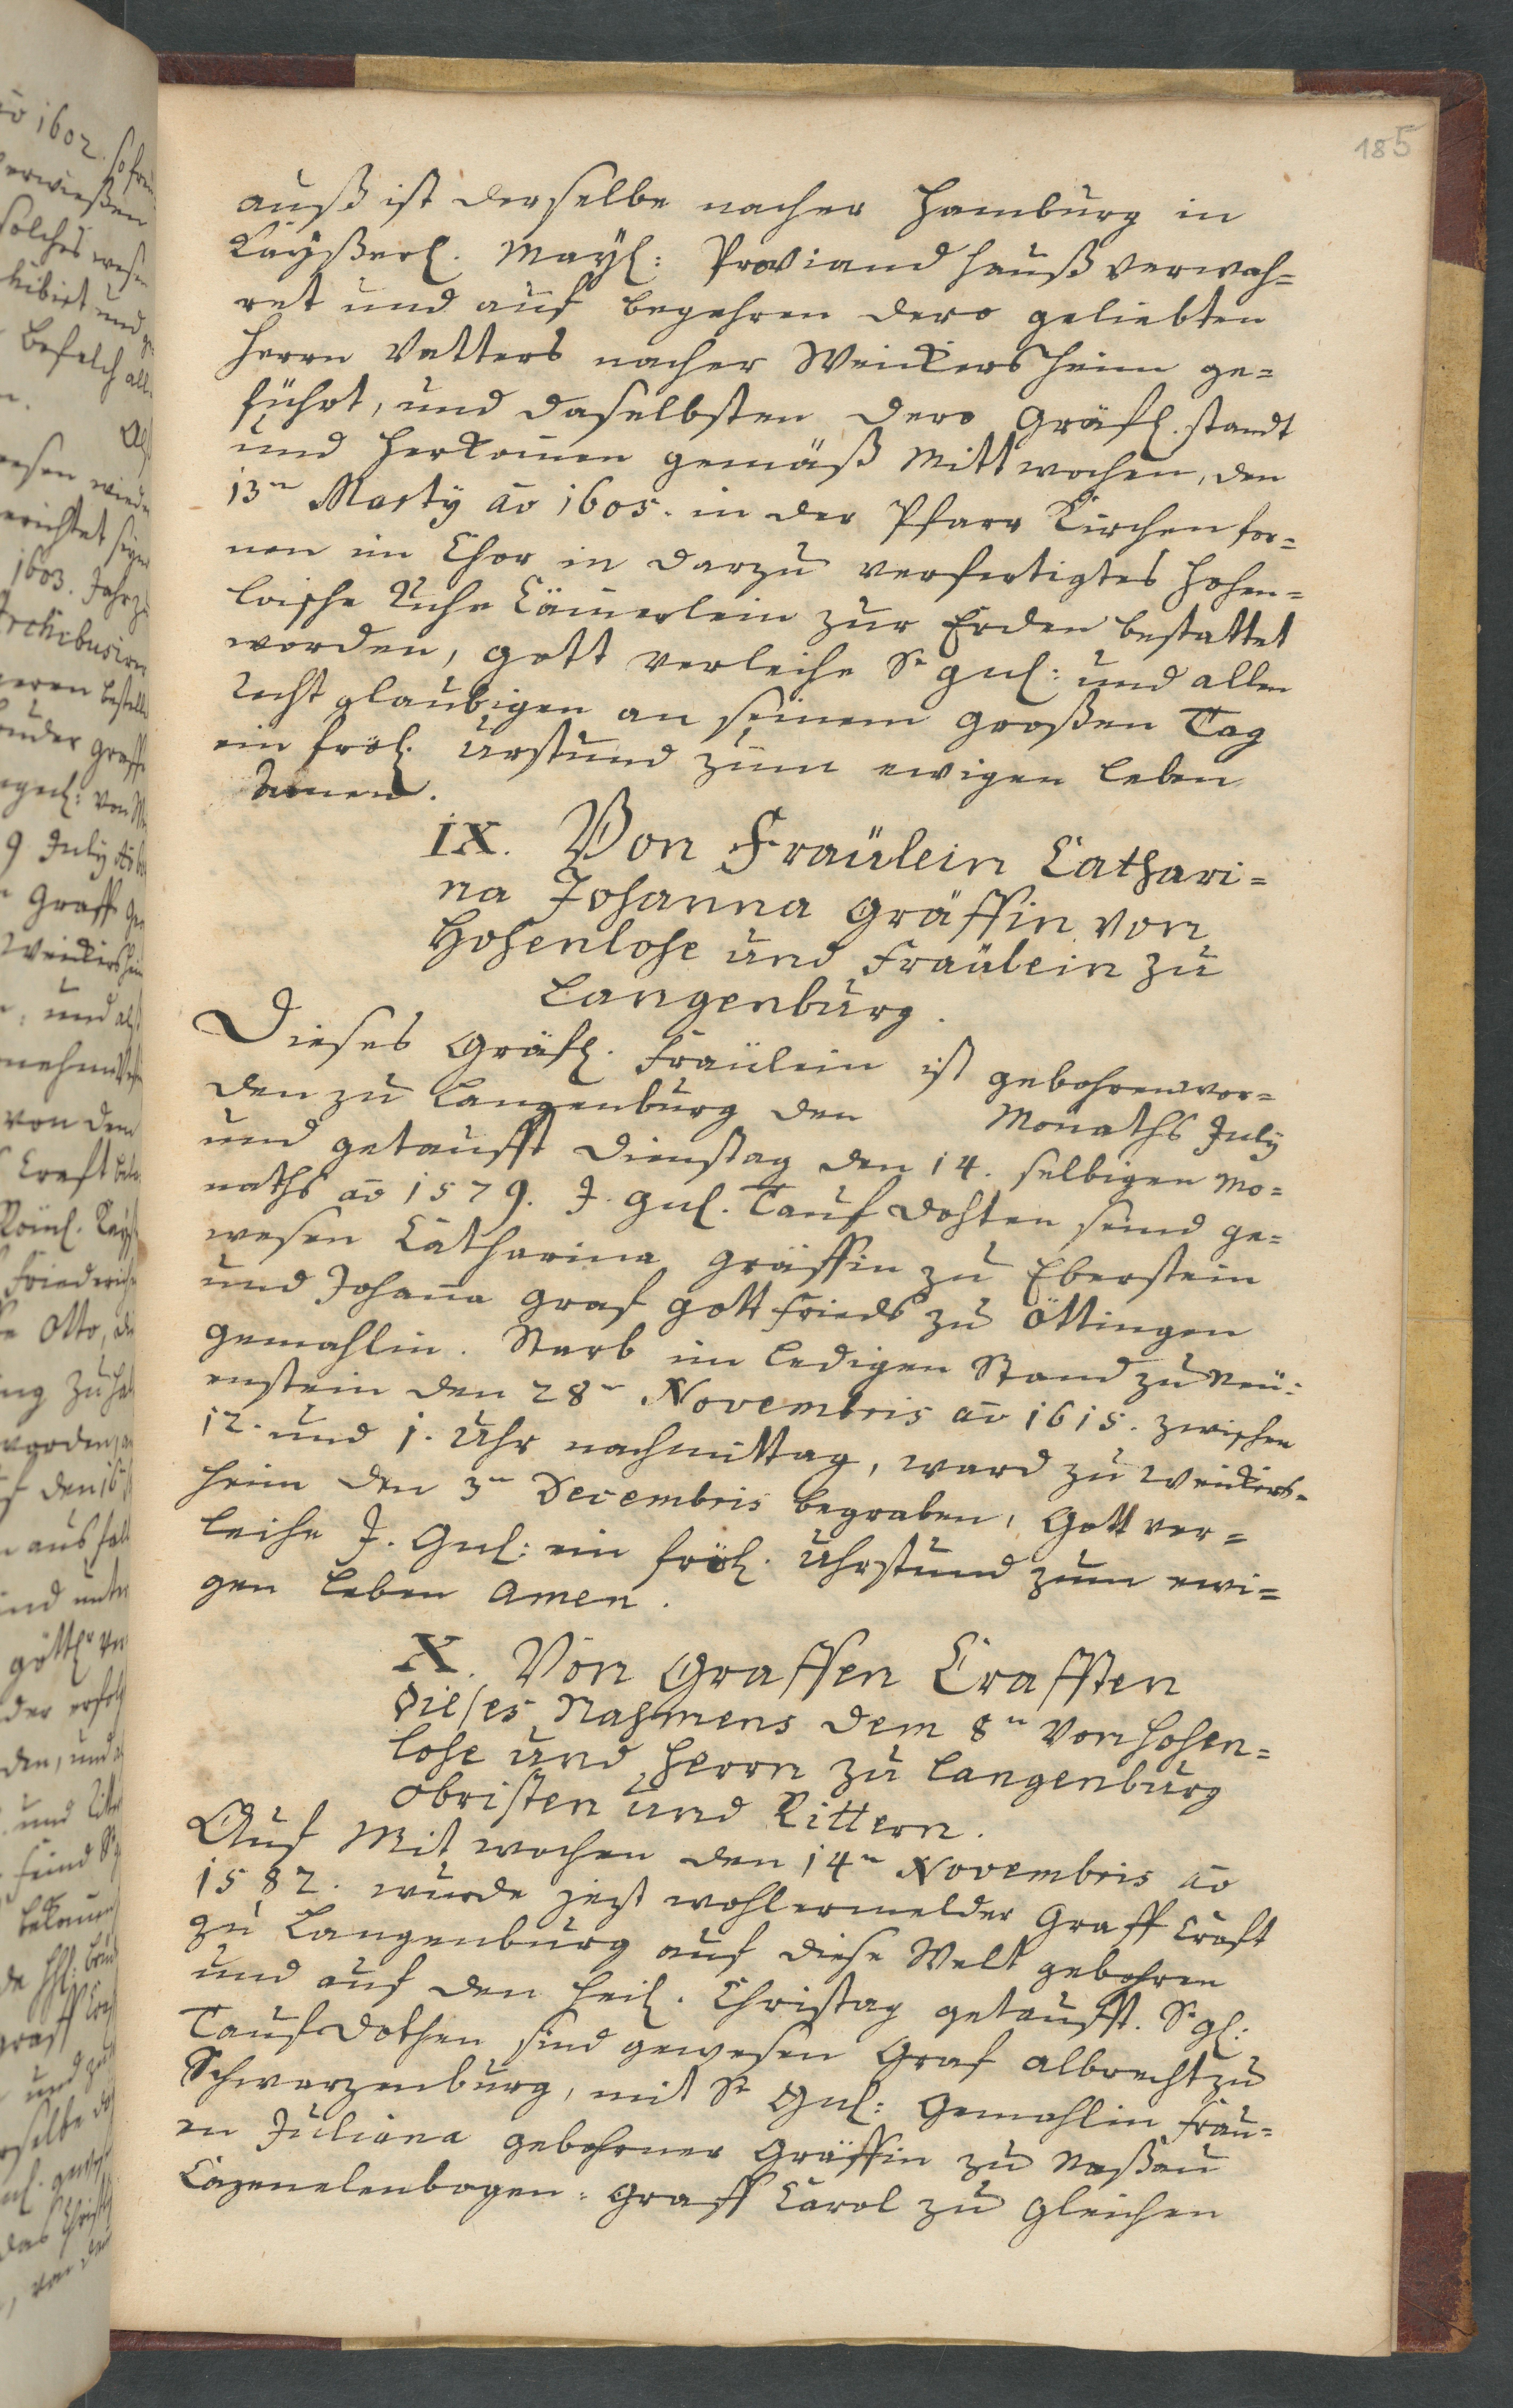 185
auß ist derselbe nacher Hamburg in
Kayßerl. Mayl: Proviand Hauß verwah=
ret und auf begehren dero geliebten
Herrn Vatters nacher Weickersheim ge=
führt, und daselbsten dero Gräfl. standt
und Herkom̄en gemäß Mittwochen, den
13ⁿ Marty aō 1605. in der Pfarr Kirchen for=
nen im Chor in darzu verfertigtes Hohen=
loische Ruhe Cäm̄erlein zur Erden bestattet
worden, Gott verleihe Sr gnl: und allen
Recht glaubigen an seinem großen Tag
ein fröl. Urstund zum ewigen leben
Amen.
IX. Von Fraülein Cathari=
na Johanna Gräffin von
Hohenlohe und Fraülein zu
Langenburg.
Dieses Gräfl. Fraülein ist gebohren wor=
den zu Langenburg den Monaths July
und getaufft Dienstag den 14. selbigen Mo=
naths aō 1579. J. Gnl. Tauf dohten seind ge=
wesen Catharina Gräffin zu Eberstein
und Johan̄a Graf Gottfrieds zu Öttingen
Gemahlin. Starb im ledigen Stand zu Neu=
enstein den 28ⁿ Novembris aō 1615. zwischen
12. und 1. Uhr nachmittag, ward zu Weickers=
heim den 3ⁿ Decembris begraben, Gott ver=
leihe J. Gnl: ein fröl. Uhrstund zum ewi=
gen Leben Amen.
X. Von Graffen Crafften
dieses Nahmens dem 8ⁿ von Hohen=
lohe und Herrn zu Langenburg
Obristen und Rittern.
Auf Mitwochen den 14ⁿ Novembris aō
1582. wurde jezt wohlermelder Graff Craft
zu Langenburg auf diese Welt gebohren
und auf den heil. Christag getaufft. Sr gl:
Taufdothen sind gewesen Graf Albrecht zu
Schwarzenburg, mit Sr Gnl: Gemahlin Frau=
en Juliana gebohrner Gräffin zu Naßau
Cazenelenbogen: Graff Carol zu Gleichen